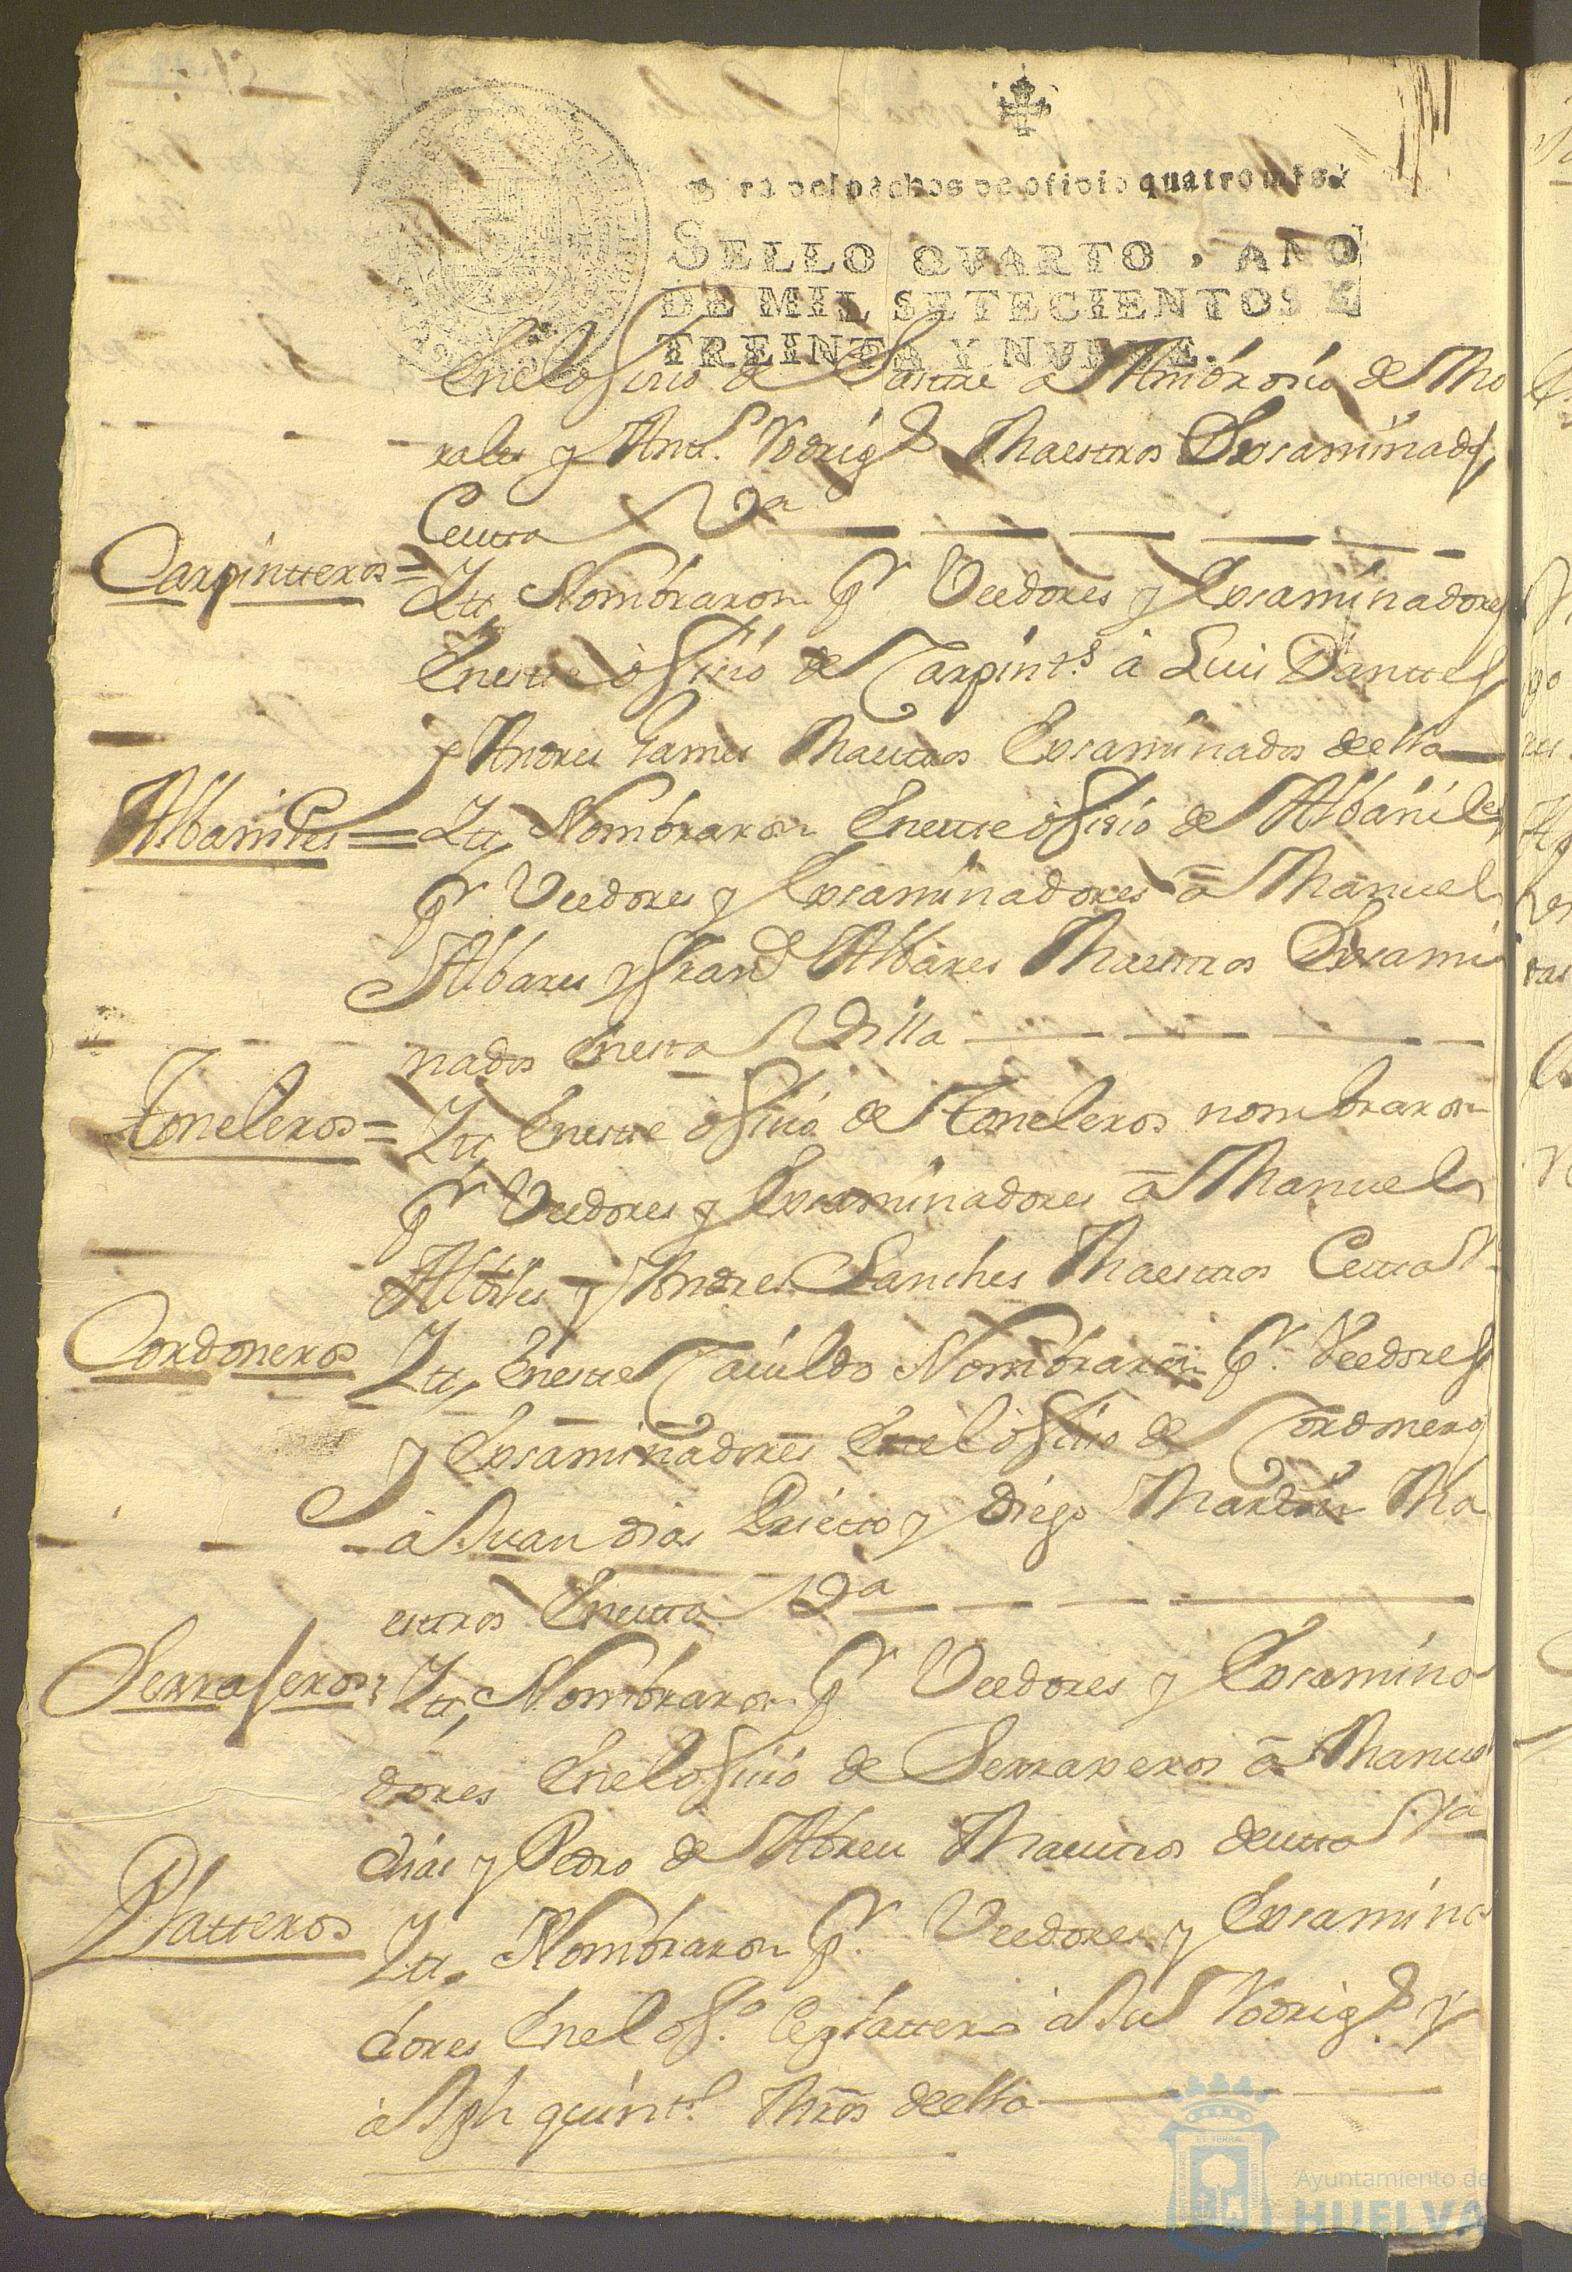 Para despachos de oficio quatro mrs.
SELLO QVARTO, AÑO
DE MIL SETECIENTOS Y
TREINTA Y NVEVE.
Enel ofisio de Sastre a Ambrosio de Mo
rales y Antº. Rodrigᶻ Maestros Exsaminados
Cesta Vª
Carpintteros = Itt, Nombraron pʳ Veedores y Exsaminadores
Enestte ofisio de Carpintˢ a Luis Danttes
y Andres Games Maestros Exsaminados deella
Albaniles = Itt, Nombraron Enestte ofisio de Albañiles
pʳ Veedores y Exsaminadores a Manuel
Albares y Franᶜᵒ Albares Maestros Exsami
nados Enesta Villa
Toneleros = Itt, Enestte ofisio de Toneleros nombraron
pʳ Veedores y Exsaminadores a Manuel
y Andres Sanches Maestros Cesta Vª
Cordoneros Itt, Enestte Cavildo Nombraron pʳ. Veedores
y Exsaminadores Enel ofisio de Cordoneros
a Juan dias Prieto y Diego Martin Ma
estros Enesta Vª
Serraferos = Itt, Nombraron pʳ Veedores y Exsamina
dores Enel ofisio de Serraxeros a Manuel
dias y Pedro de Abreu Maestros desta Vª
Platteros Itt. Nombraron pʳ. Veedores y Exsamina
dores Enel ofº. Ceplattero a Juº Rodrigᶻ. y
a Jph quintˡ. Mros deella
Ayuntamiento de
HUELVA